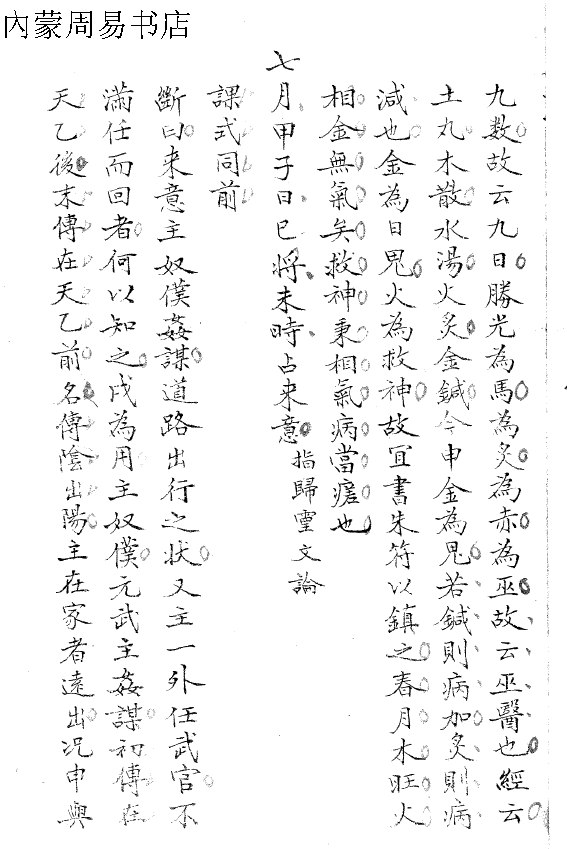 內蒙周易书店
九数故云九日勝光為馬為炙為赤為巫故云巫醫也經云
土丸木散水湯火炙金鍼今申金為鬼若鍼則病加炙則病
減也金為日鬼火為救神故宜書朱符以鎮之春月木旺火
相金無氣矣救神秉相氣病當瘥也
七月甲子日巳將未時占来意 指歸靈文論
課式同前
斷曰来意主奴僕姦謀道路出行之状又主一外任武官不
滿任而回者何以知之戌為用主奴僕元武主姦謀初傳在
天乙後末傳在天乙前名傳陰出陽主在家者遠出况申與